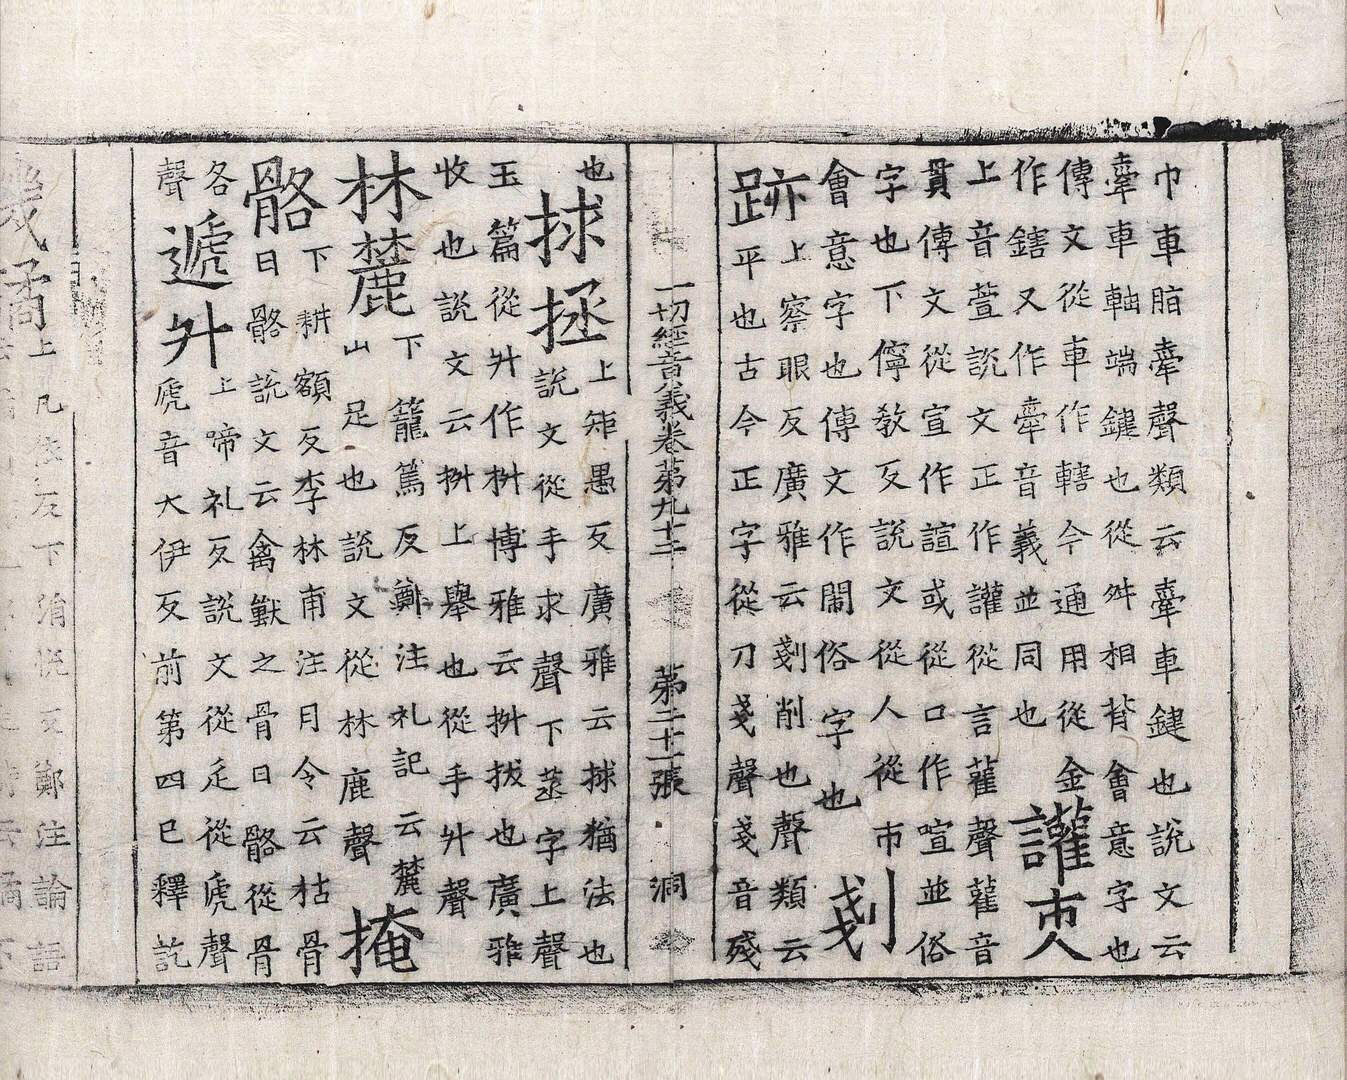 巾車脂舝聲類云舝車鍵也說文云
舝車軸端鍵也從舛相背會意字也
傳文從車作轄今通用從金
作鎋又作舝音義並同也
讙㕥
上音萱說文正作讙從言雚聲雚音
貫傳文從宣作諠或從口作喧並俗
字也下儜教反說文從人從市
會意字也傳文作閙俗字也
剗
跡
上察眼反廣雅云剗削也聲類云
平也古今正字從刀戔聲戔音殘
一切經音義卷第九十二 第二十二張 洞
也
捄拯
上矩愚反廣雅云捄猶法也
說文從手求聲下蒸字上聲
玉篇從廾作拼博雅云拼拔也廣雅
收也說文云拼上舉也從手廾聲
林麓
下籠篤反鄭注礼記云麓
山足也說文從林鹿聲
掩
骼
下耕額反李林甫注月令云枯骨
曰骼說文云禽獸之骨曰骼從骨
各
聲
遞廾
上啼礼反說文從辵從虒聲
虒音大伊反前第四已釋訖
上凡法反下消悅反鄭注論語